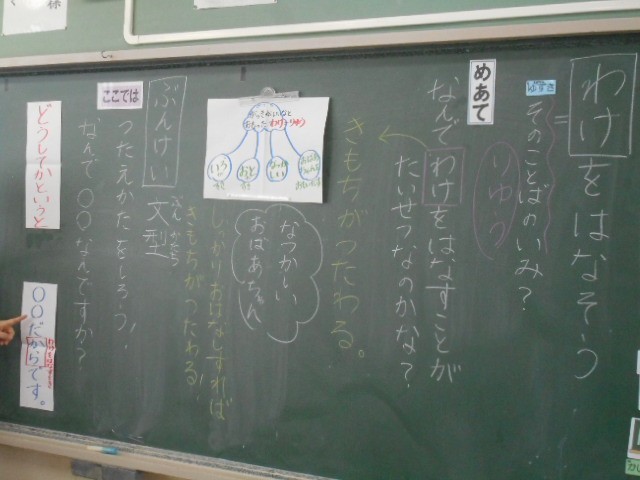 様
わけをはなそう
=
ゆずき
そのことばのいみ?
りゆう
めあて
なんでわけをはなすことが
たいせつなのかな?
きもちがつたわる。
なつかしい
おばあちゃん
しっかりおはなしすれば
きもちがつたわる!
ぶんけい
ぶん かた
文型
ここでは
つたえかたをしろう!
なんで〇〇なんですか?
どうしてかというと
〇〇だからです。